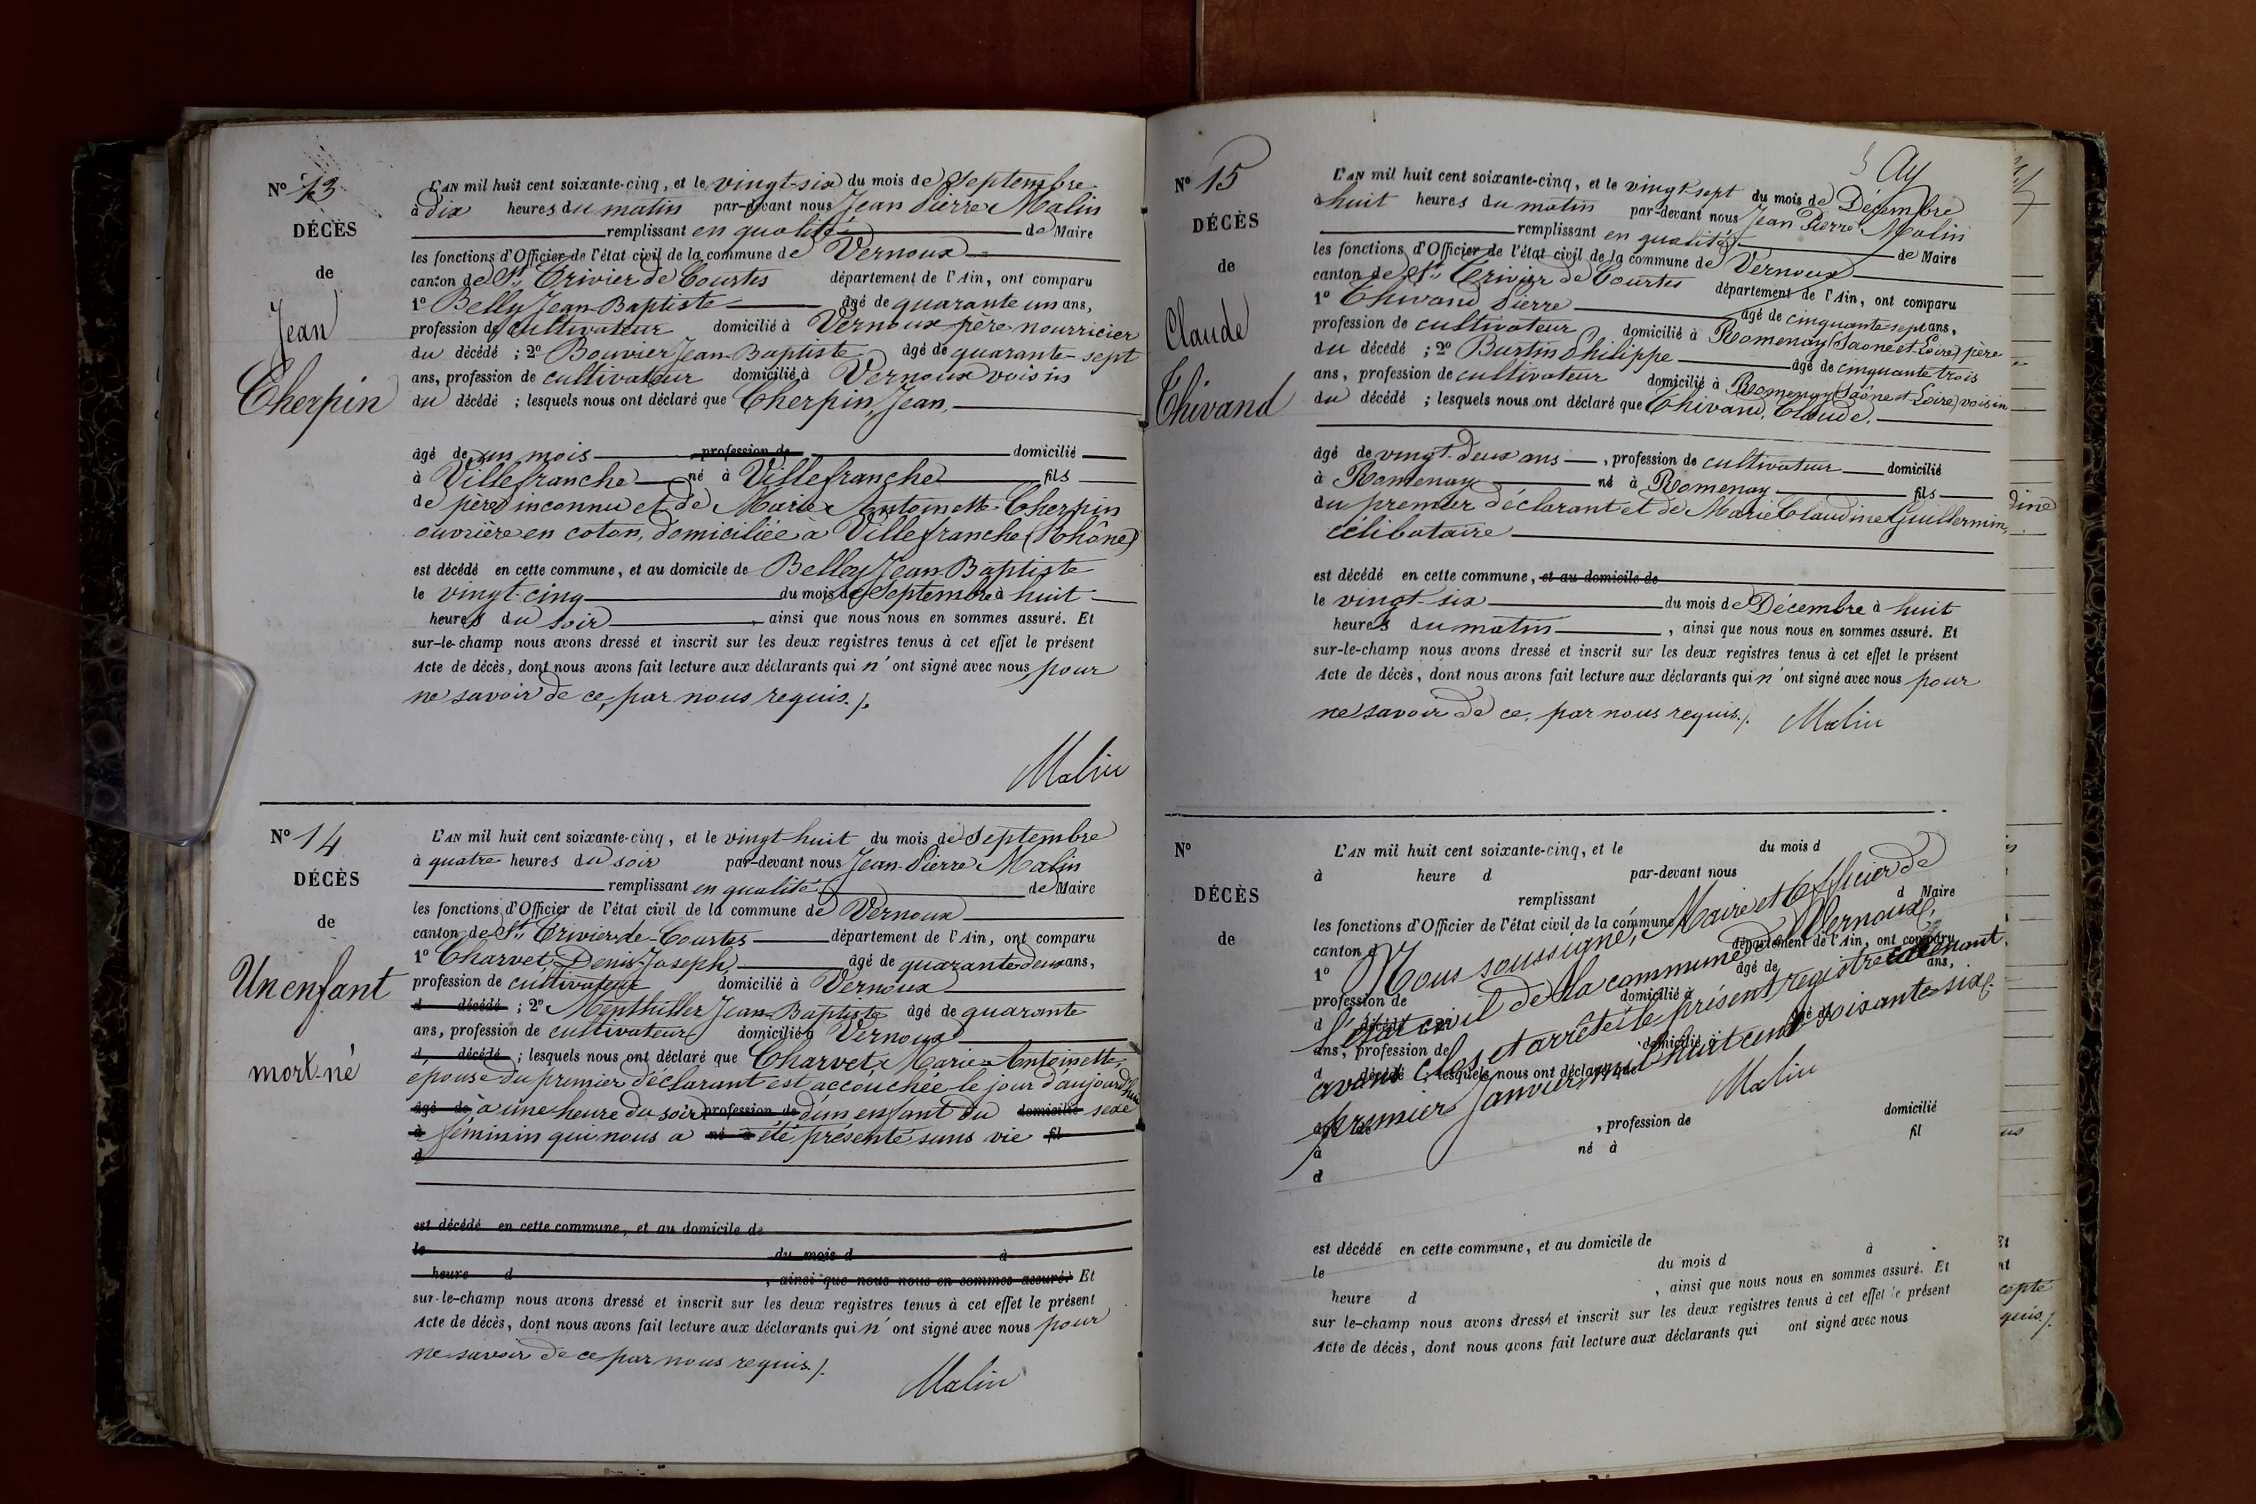 Nº 13
DÉCÈS
de
Jean
Cherpin
L'AN mil huit cent soixante-cinq, et le vingt-six du mois de Septembre
à dix heures du matin par-devant nous Jean Pierre Malin
remplissant en qualité de Maire
les fonctions d'Officier de l'état civil de la commune de Vernoux
canton de St Trivier de Courtes département de l'Ain, ont comparu
1º Belly Jean-Baptiste âgé de quarante un ans,
profession de cultivateur domicilié à Vernoux père nourricier
du décédé ; 2º Bouvier Jean-Baptiste âgé de quarante-sept
ans, profession de cultivateur domicilié à Vernoux voisin
du décédé ; lesquels nous ont déclaré que Cherpin, Jean,
âgé de un mois profession de domicilié
à Villefranche né à Villefranche fils
de père inconnu et de Marie Antoinette Cherpin
ouvrière en coton, domiciliée à Villefranche (Rhône)
est décédé en cette commune, et au domicile de Belly Jean-Baptiste
le vingt-cinq du mois de Septembre à huit
heures du soir, ainsi que nous nous en sommes assuré. Et
sur-le-champ nous avons dressé et inscrit sur les deux registres tenus à cet effet le présent
Acte de décès, dont nous avons fait lecture aux déclarants qui n'ont signé avec nous pour
ne savoir de ce, par nous requis ./.
Malin
Nº 14
DÉCÈS
de
Un enfant
mort-né
L'AN mil huit cent soixante-cinq, et le vingt-huit du mois de Septembre
à quatre heures du soir par-devant nous Jean-Pierre Malin
remplissant en qualité de Maire
les fonctions d'Officier de l'état civil de la commune de Vernoux
canton de St Trivier-de-Courtes département de l'Ain, ont comparu
1º Charvet, Denis-Joseph, âgé de quarante deux ans,
profession de cultivateur domicilié à Vernoux
d décédé ; 2º Menthiller Jean-Baptiste âgé de quarante
ans, profession de cultivateur domicilié à Vernoux
d décédé ; lesquels nous ont déclaré que Charvet, Marie Antoinette,
épouse du premier déclarant est accouchée le jour d'aujourd'hui
âgé de à une heure du soir profession de d'un enfant du domicilié sexe
à féminin qui nous a né à été présenté sans vie fil
d
est décédé en cette commune, et au domicile de
le du mois d à
heure d , ainsi que nous nous en sommes assuré. Et
sur-le-champ nous avons dressé et inscrit sur les deux registres tenus à cet effet le présent
Acte de décès, dont nous avons fait lecture aux déclarants qui n'ont signé avec nous pour
ne savoir de ce par nous requis ./.
Malin
Nº 15
DÉCÈS
de
Claude
Thivand
L'AN mil huit cent soixante-cinq, et le vingt-sept du mois de Décembre
à huit heures du matin par-devant nous Jean Pierre Malin
remplissant en qualité de Maire
les fonctions d'Officier de l'état civil de la commune de Vernoux
canton de St Trivier de Courtes département de l'Ain, ont comparu
1º Thivand Pierre âgé de cinquante-sept ans,
profession de cultivateur domicilié à Romenay (Saône-et-Loire) père
du décédé ; 2º Burtin Philippe âgé de cinquante trois
ans, profession de cultivateur domicilié à Romenay (Saône et Loire) voisin
du décédé ; lesquels nous ont déclaré que Thivand, Claude,
âgé de vingt-deux ans, profession de cultivateur domicilié
à Romenay né à Romenay fils
du premier déclarant et de Marie Claudine Guillermin,
célibataire
est décédé en cette commune, et au domicile de
le vingt-six du mois de Décembre à huit
heures du matin, ainsi que nous nous en sommes assuré. Et
sur-le-champ nous avons dressé et inscrit sur les deux registres tenus à cet effet le présent
Acte de décès, dont nous avons fait lecture aux déclarants qui n'ont signé avec nous pour
ne savoir de ce, par nous requis ./. Malin
Nº
DÉCÈS
de
L'AN mil huit cent soixante-cinq, et le du mois d
à heure d par-devant nous
remplissant d Maire
les fonctions d'Officier de l'état civil de la commune
canton d département de l'Ain, ont comparu
1º âgé de ans,
profession de domicilié à
d décédé ; 2º âgé de
ans, profession de domicilié à
d décédé ; lesquels nous ont déclaré que
Nous soussigné, Maire et Officier de
l'état civil de la commune de Vernoux,
avons clos et arrêté le présent registre
premier Janvier mil huit cent soixante-six.
Malin
âgé de , profession de domicilié
à né à fil
d
est décédé en cette commune, et au domicile de
le du mois d à
heure d , ainsi que nous nous en sommes assuré. Et
sur le-champ nous avons dressé et inscrit sur les deux registres tenus à cet effet le présent
Acte de décès, dont nous avons fait lecture aux déclarants qui ont signé avec nous